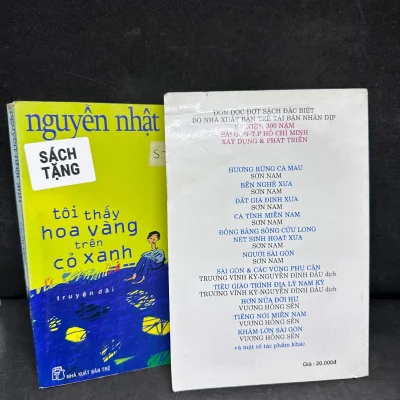 nguyễn nhật
SÁCH
TẶNG
S
tôi thấy
hoa vàng
trên
cỏ xanh
truyện dài
NHÀ XUẤT BẢN TRẺ
ĐÓN ĐỌC ĐỢT SÁCH ĐẶC BIỆT
DO NHÀ XUẤT BẢN TRẺ TÁI BẢN NHÂN DỊP
KỶ NIỆM 300 NĂM
SÀI GÒN-T.P HỒ CHÍ MINH
XÂY DỰNG & PHÁT TRIỂN
HƯƠNG RỪNG CÀ MAU
SƠN NAM
BẾN NGHÉ XƯA
SƠN NAM
ĐẤT GIA ĐỊNH XƯA
SƠN NAM
CÁ TÍNH MIỀN NAM
SƠN NAM
ĐỒNG BẰNG SÔNG CỬU LONG
NÉT SINH HOẠT XƯA
SƠN NAM
NGƯỜI SÀI GÒN
SƠN NAM
SÀI GÒN & CÁC VÙNG PHỤ CẬN
TRƯƠNG VĨNH KÝ-NGUYỄN ĐÌNH ĐẦU dịch
TIỂU GIÁO TRÌNH ĐỊA LÝ NAM KỲ
TRƯƠNG VĨNH KÝ-NGUYỄN ĐÌNH ĐẦU dịch
HƠN NỬA ĐỜI HƯ
VƯƠNG HỒNG SỂN
TIẾNG NÓI MIỀN NAM
VƯƠNG HỒNG SỂN
KHẢM LỚN SÀI GÒN
VƯƠNG HỒNG SỂN
và một số tác phẩm khác.
Giá : 20.000đ